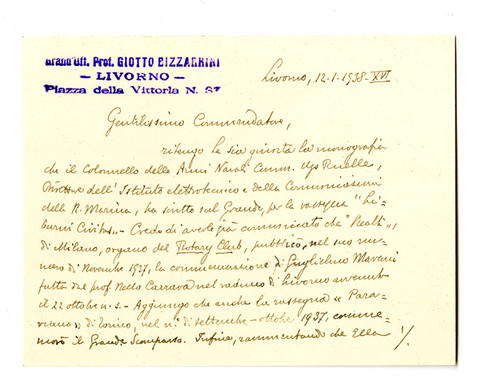 Grand'Uff. Prof. GIOTTO BIZZARRINI
— LIVORNO —
Piazza della Vittoria N. 37
Livorno, 12.1.1938-XVI
Gentilissimo Commendatore,
ritengo Le sia giunta la monografia
che il Colonnello delle Armi Navali Comm. Ugo Ruelle,
Direttore dell'Istituto elettrotecnico e delle Comunicazioni
della R. Marina, ha scritto sul Grande, per la rassegna "Li-
burni Civitas". - Credo di averle già comunicato che "Realtà",
di Milano, organo del Rotary Club, pubblicò, nel suo nu-
mero di Novembre 1937, la commemorazione di Guglielmo Marconi
fatta dal prof Nello Carrara nel raduno di Livorno avvenuto
il 22 ottobre u.s. - Aggiungo che anche la rassegna "Para-
viana" di Torino, nel n° di settembre-ottobre 1937, comme-
morò il Grande Scomparso. Infine, rammentando che Ella ./.